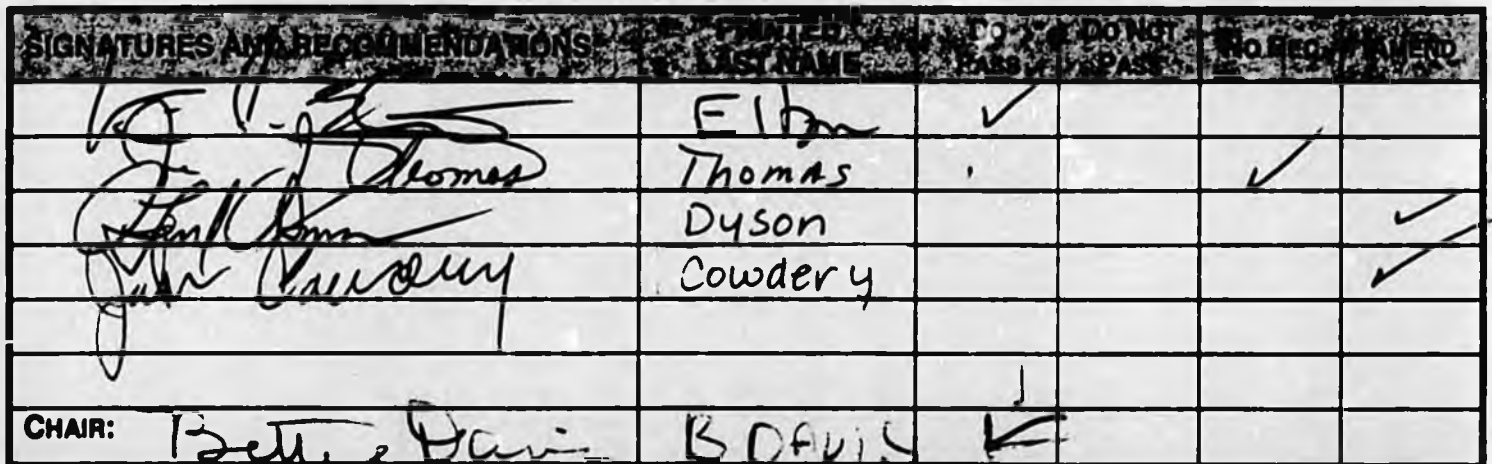 SIGNATURES AND RECOMMENDATIONS PRINTED LAST NAME DO PASS DO NOT PASS NO REC. AMEND
Elton ✓
Thomas Thomas ✓
Dyson ✓
John Cowdery Cowdery ✓
CHAIR: Bettye Davis B DAVIS ✓